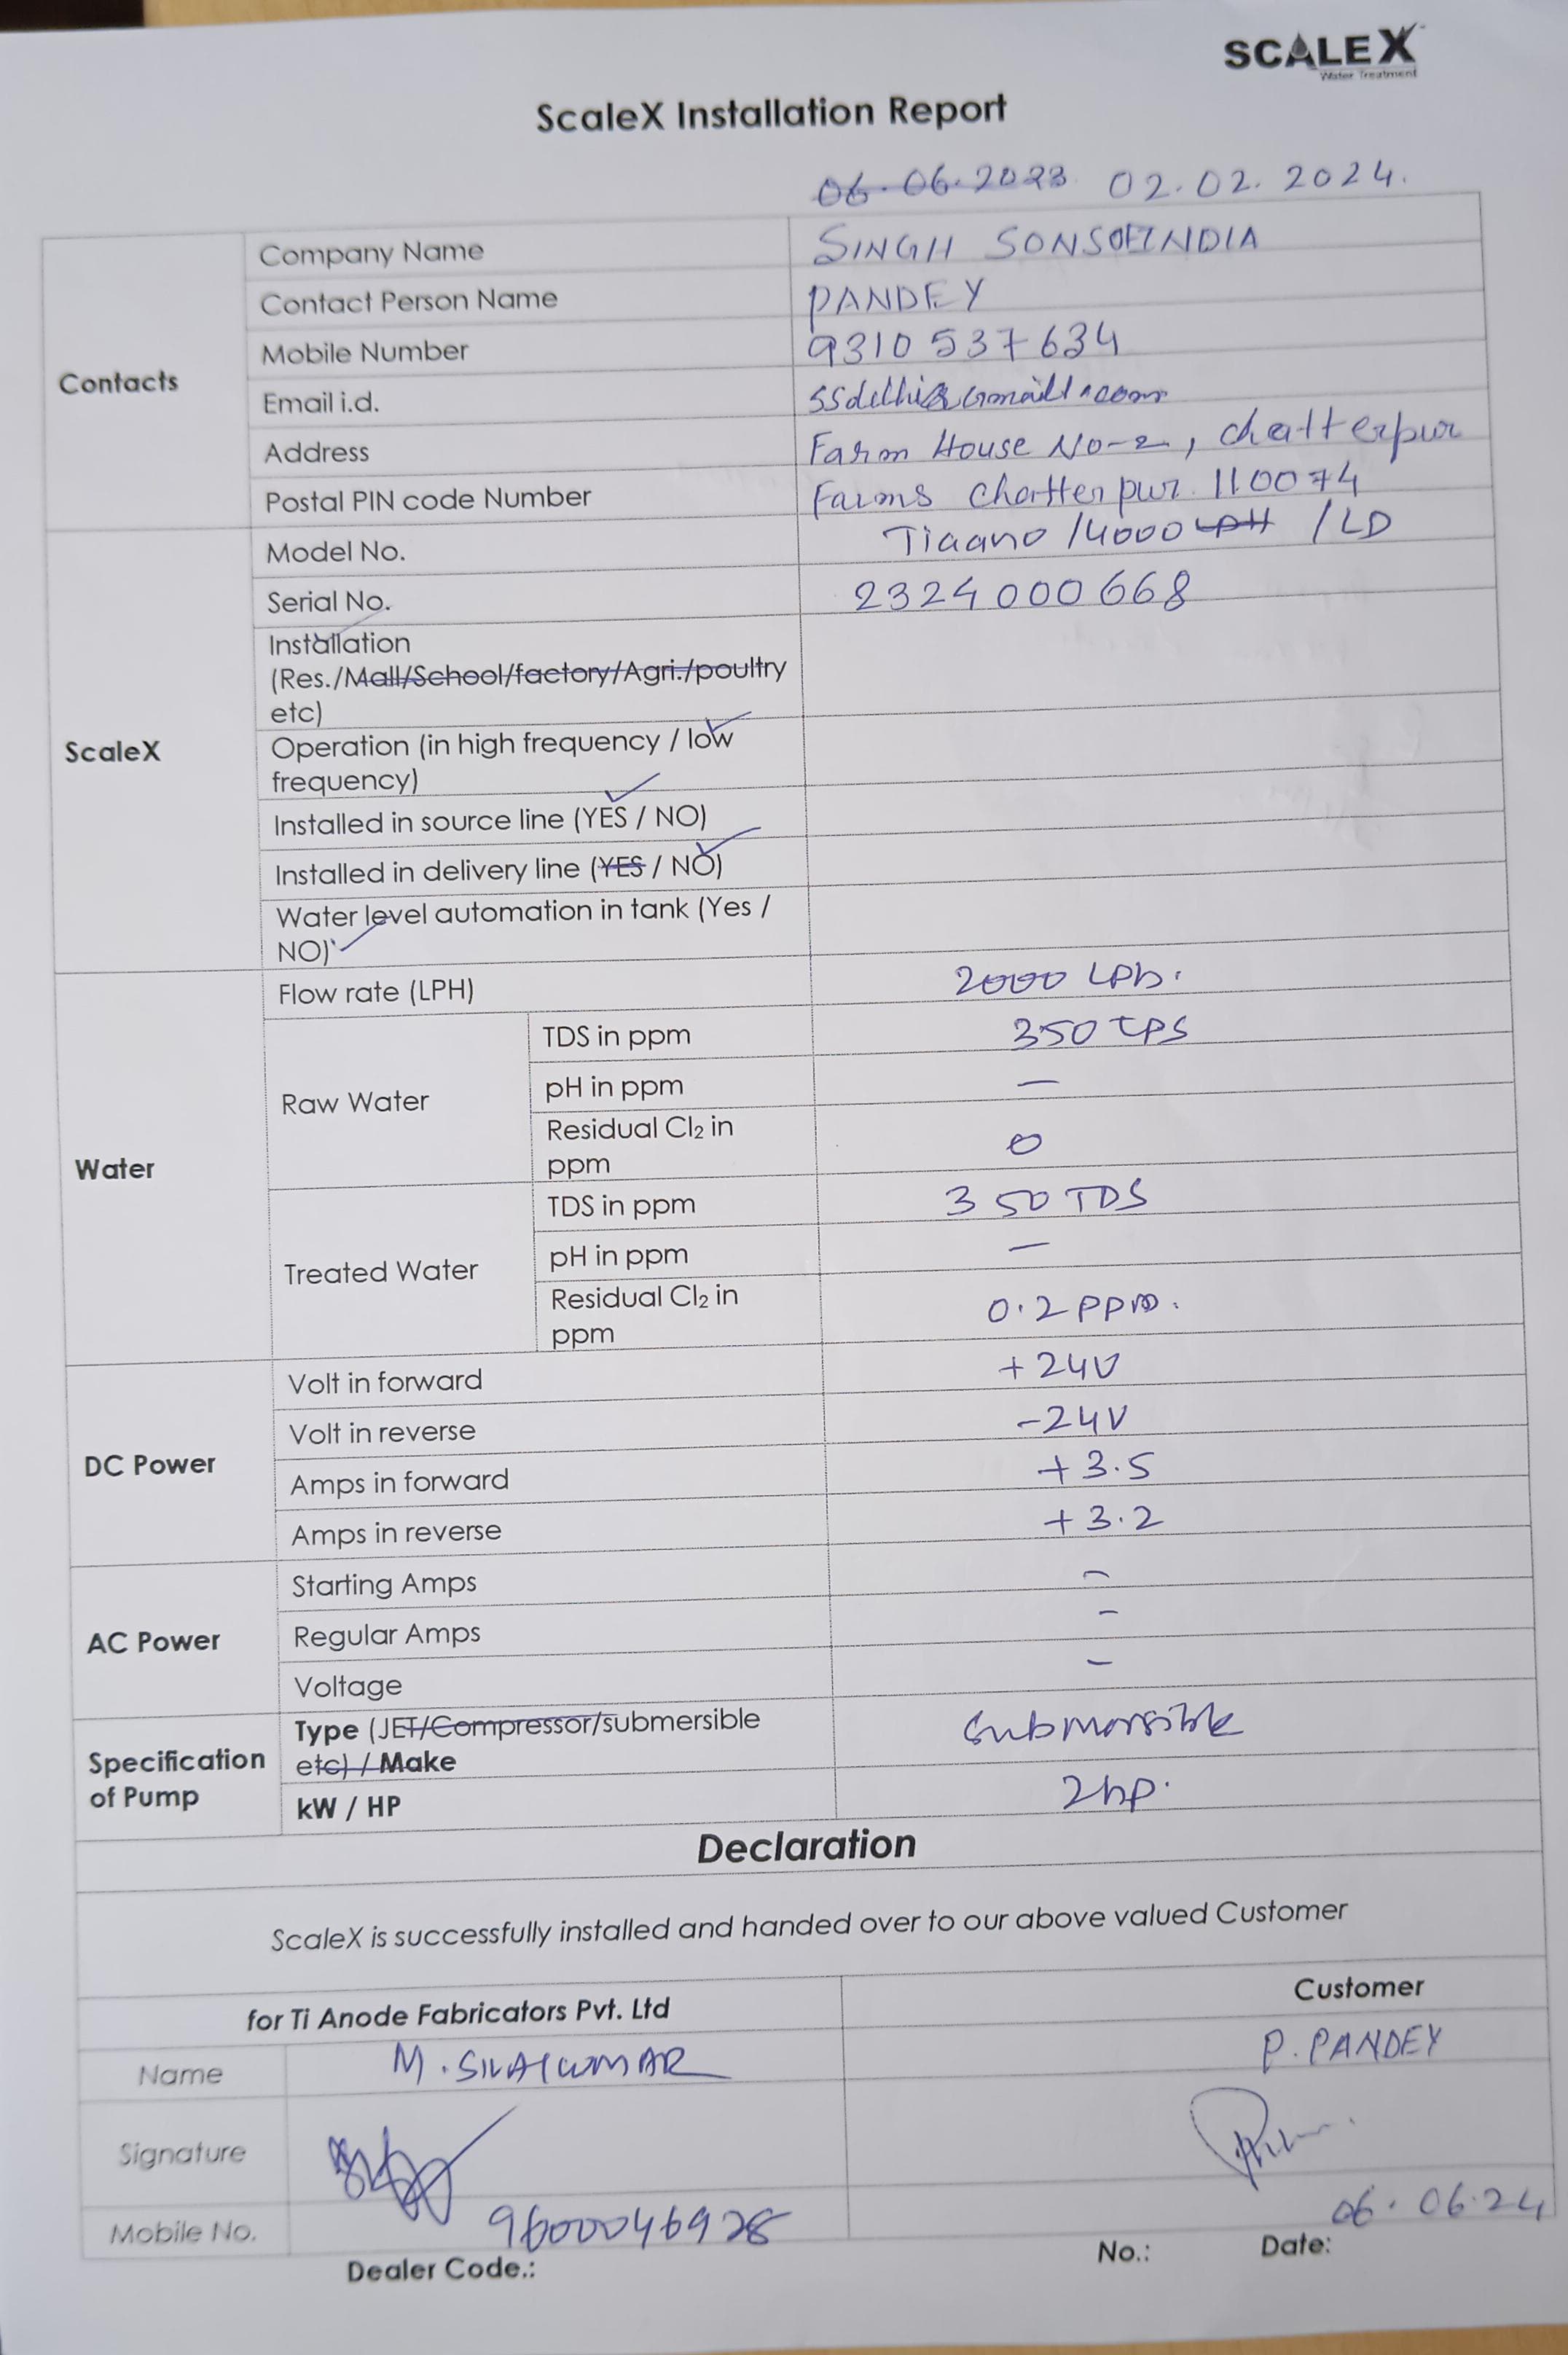 SCALEX
Water Treatment
ScaleX Installation Report
06.06.2023 02.02.2024.
Contacts
Company Name SINGH SONSOFINDIA
Contact Person Name PANDEY
Mobile Number 9310537634
Email i.d.
Address Farm House No-2, chatterpur
Postal PIN code Number Farms Chatterpur 110074
ScaleX
Model No. Tiaano /4000 LPH /LD
Serial No. 2324000668
Installation
(Res./Mall/School/factory/Agri./poultry
etc)
Operation (in high frequency / low
frequency)
Installed in source line (YES / NO)
Installed in delivery line (YES / NO)
Water level automation in tank (Yes /
NO)
Water
Flow rate (LPH) 2000 LPh.
Raw Water
TDS in ppm 350 TPS
pH in ppm —
Residual Cl₂ in
ppm 0
Treated Water
TDS in ppm 350 TDS
pH in ppm —
Residual Cl₂ in
ppm 0.2 ppm.
DC Power
Volt in forward +24V
Volt in reverse -24V
Amps in forward +3.5
Amps in reverse +3.2
AC Power
Starting Amps -
Regular Amps -
Voltage -
Specification
of Pump
Type (JET/Compressor/submersible
etc) / Make Submersible
kW / HP 2hp.
Declaration
ScaleX is successfully installed and handed over to our above valued Customer
for Ti Anode Fabricators Pvt. Ltd Customer
Name M. SIVAKUMAR P. PANDEY
Signature
Mobile No. 9600046928 06.06.24
Dealer Code.: No.: Date: